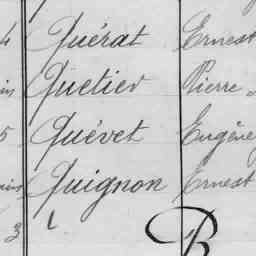 4 Quérat Ernest
Quetier Pierre
5 Quévet Eugène
Quignon Ernest
3 R